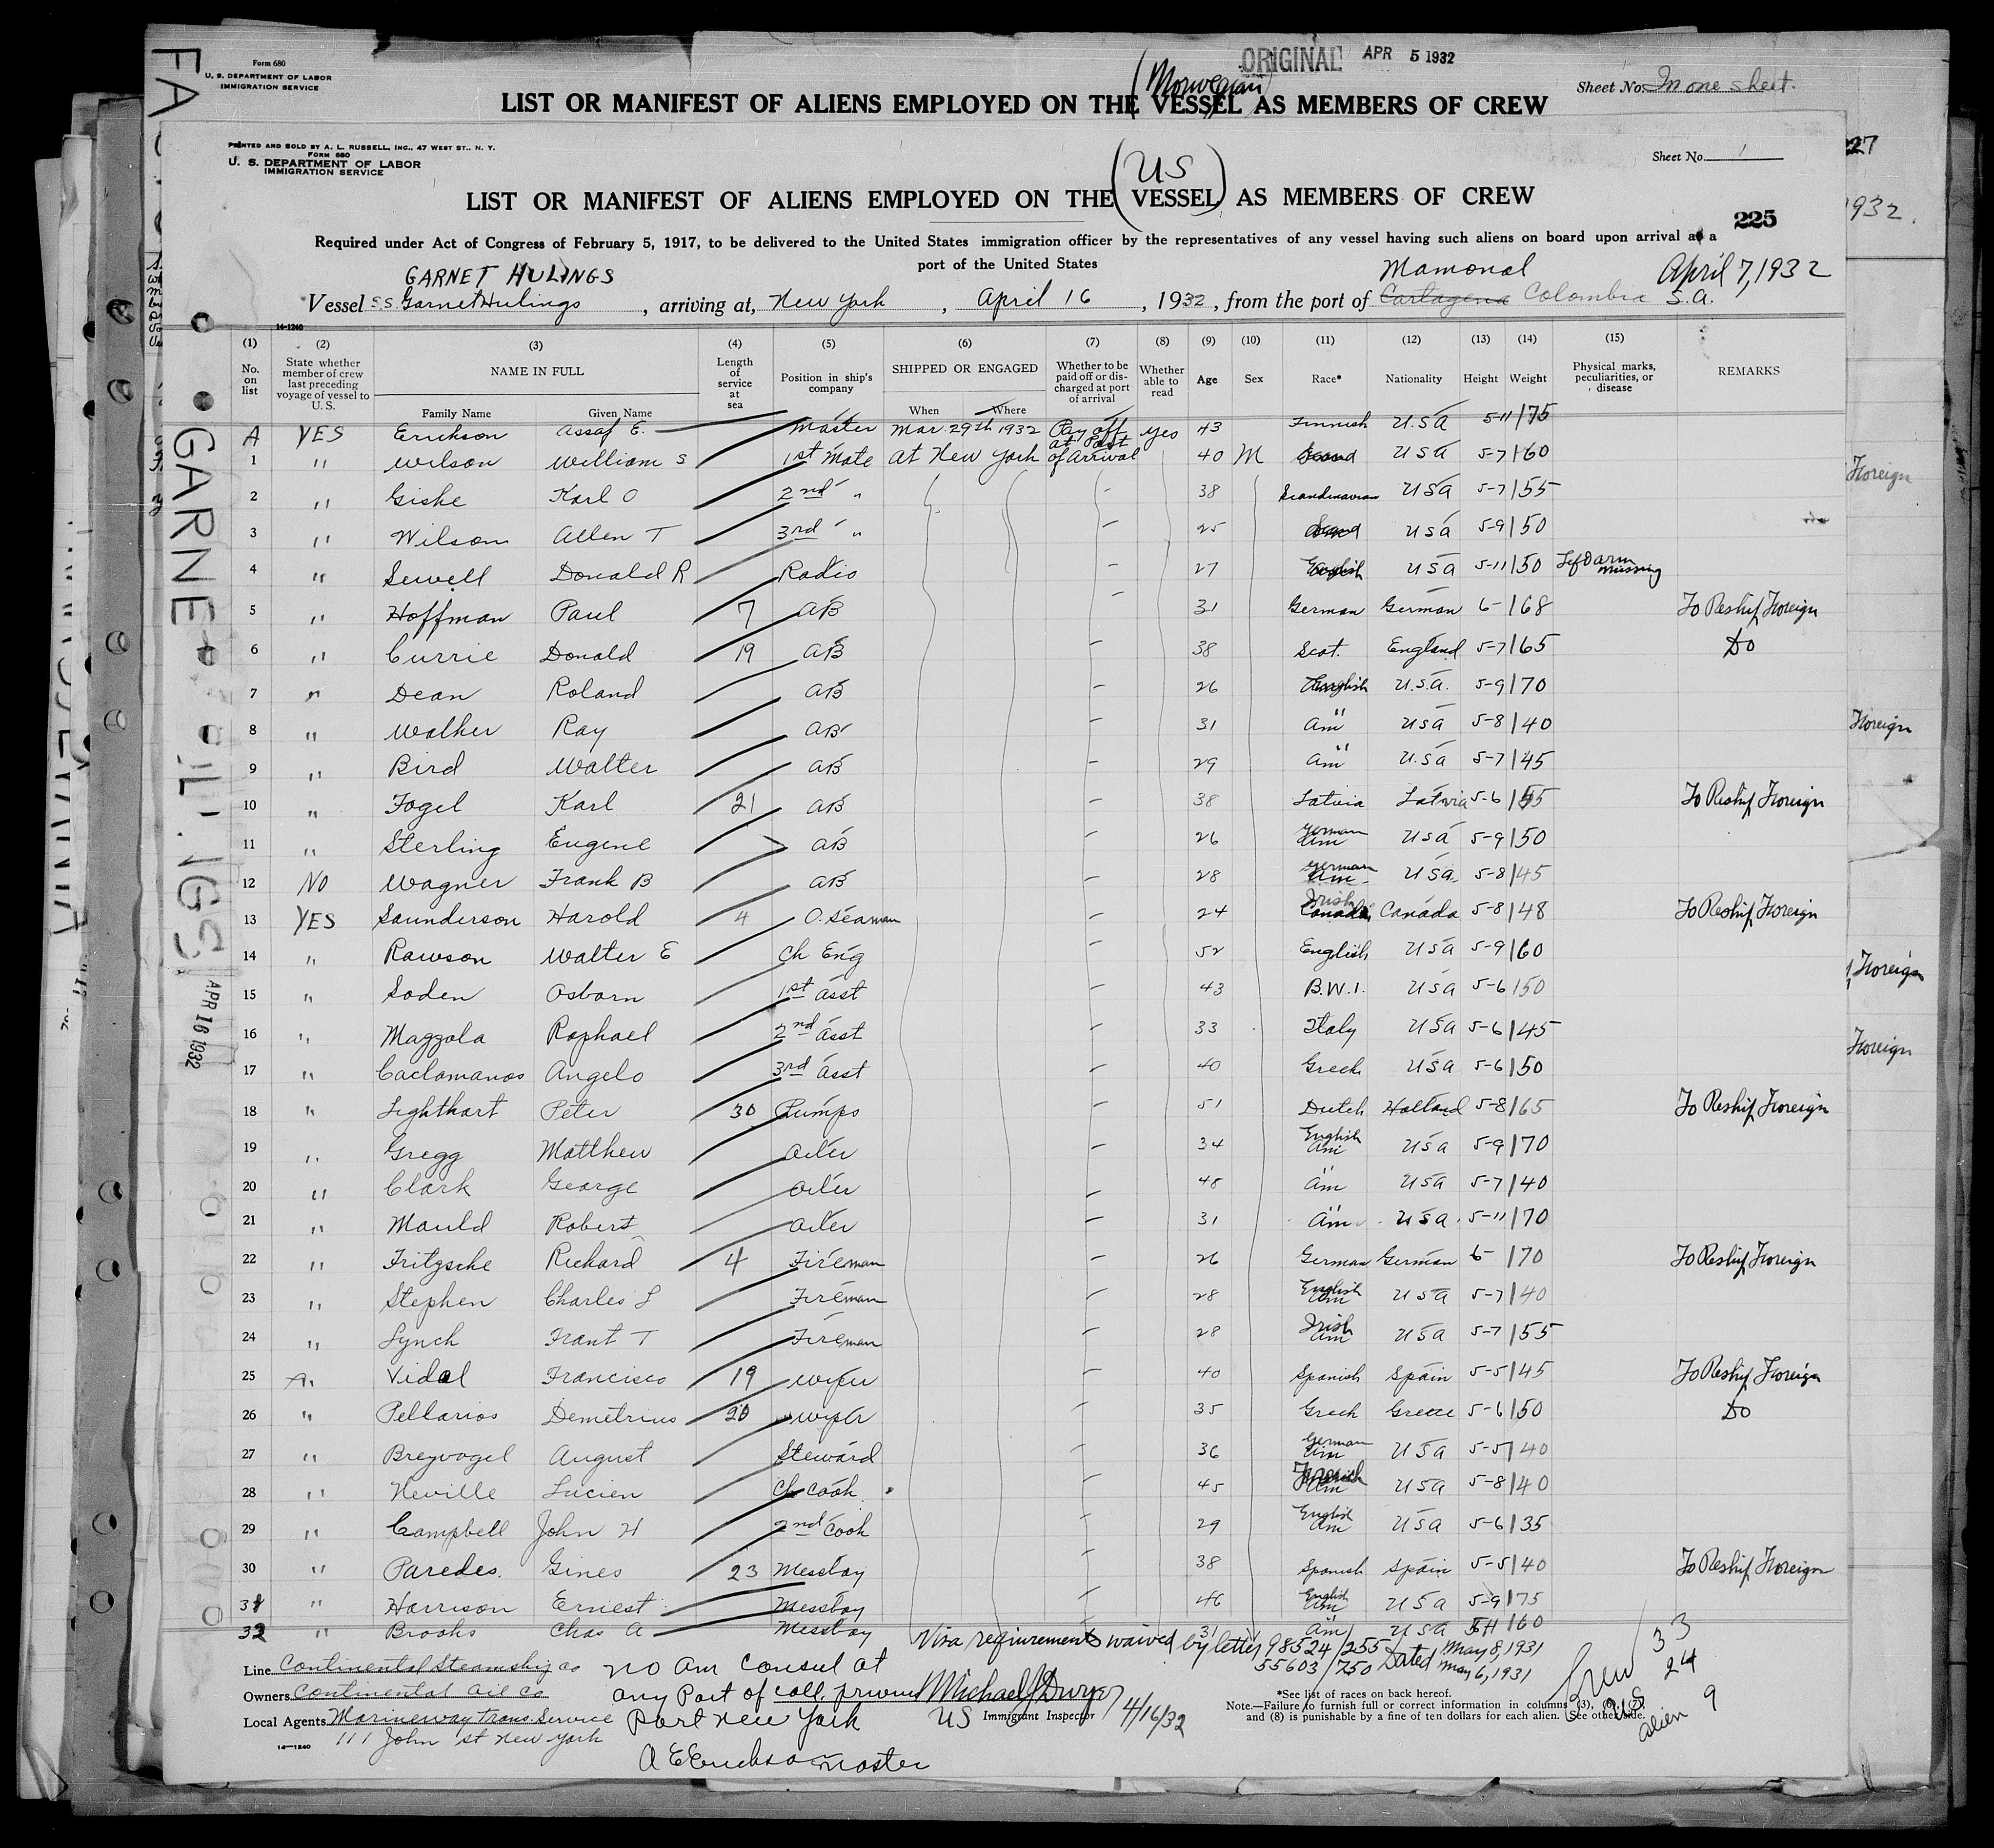 Form 680
U. S. DEPARTMENT OF LABOR
IMMIGRATION SERVICE
ORIGINAL APR 5 1932
(Norwegian)
Sheet No. In one sheet.
LIST OR MANIFEST OF ALIENS EMPLOYED ON THE VESSEL AS MEMBERS OF CREW
PRINTED AND SOLD BY A. L. RUSSELL, INC., 47 WEST ST., N. Y.
FORM 680
U. S. DEPARTMENT OF LABOR
IMMIGRATION SERVICE
Sheet No. 1
(US)
LIST OR MANIFEST OF ALIENS EMPLOYED ON THE VESSEL AS MEMBERS OF CREW
225
Required under Act of Congress of February 5, 1917, to be delivered to the United States immigration officer by the representatives of any vessel having such aliens on board upon arrival at a
port of the United States
GARNET HULINGS Mamonal April 7, 1932
Vessel S.S. Garnet Hulings, arriving at, New York, April 16, 1932, from the port of Cartagena Colombia S.A.
14-1240
(1) (2) (3) (4) (5) (6) (7) (8) (9) (10) (11) (12) (13) (14) (15)
No. on list State whether member of crew last preceding voyage of vessel to U.S. NAME IN FULL Length of service at sea Position in ship's company SHIPPED OR ENGAGED Whether to be paid off or discharged at port of arrival Whether able to read Age Sex Race* Nationality Height Weight Physical marks, peculiarities, or disease REMARKS
Family Name Given Name When Where
A YES Erickson Assaf E. Master Mar. 29th 1932 Pay off at Port yes 43 Finnish U.S.A 5-11 175
1 " Wilson William S 1st Mate at New York of arrival 40 M Scand USA 5-7 160
2 " Giske Karl O 2nd " 38 Scandinavian USA 5-7 155
3 " Wilson Allen T 3rd " 25 Scand USA 5-9 150
4 " Sewell Donald R Radio 27 English USA 5-11 150 Left arm missing
5 " Hoffman Paul 7 AB 31 German German 6- 168 To Reship Foreign
6 " Currie Donald 19 AB 38 Scot. England 5-7 165 Do
7 " Dean Roland AB 26 English U.S.A. 5-9 170
8 " Walker Ray AB 31 Am " USA 5-8 140
9 " Bird Walter AB 29 Am " U.S.A 5-7 145
10 " Fogel Karl 21 AB 38 Latvia Latvia 5-6 155 To Reship Foreign
11 " Sterling Eugene AB 26 German Am USA 5-9 150
12 NO Wagner Frank B AB 28 German Am USA 5-8 145
13 YES Saunderson Harold 4 O. Seaman 24 Irish Canada Canada 5-8 148 To Reship Foreign
14 " Rawson Walter E Ch Eng 52 English USA 5-9 160
15 " Soden Osborn 1st Asst 43 B.W.I. USA 5-6 150
16 " Mazzola Raphael 2nd Asst 33 Italy USA 5-6 145
17 " Caclamanos Angelo 3rd Asst 40 Greek USA 5-6 150
18 " Lighthart Peter 30 Pumps 51 Dutch Holland 5-8 165 To Reship Foreign
19 " Gregg Matthew Oiler 34 English Am USA 5-9 170
20 " Clark George Oiler 45 Am " USA 5-7 140
21 " Mauld Robert Oiler 31 Am " USA 5-11 170
22 " Fritzsche Richard 4 Fireman 26 German German 6- 170 To Reship Foreign
23 " Stephen Charles L Fireman 28 English Am USA 5-7 140
24 " Lynch Frant T Fireman 28 Irish Am USA 5-7 155
25 " Vidal Francisco 19 Wiper 40 Spanish Spain 5-5 145 To Reship Foreign
26 " Pellarios Demetrius 20 Wiper 35 Greek Greece 5-6 150 Do
27 " Breyvogel August Steward 36 German Am USA 5-5 140
28 " Neville Lucien Ch Cook 45 French Am USA 5-8 140
29 " Campbell John H 2nd Cook 29 English Am USA 5-6 135
30 " Paredes. Gines 23 Messboy 38 Spanish Spain 5-5 140 To Reship Foreign
31 " Harrison Ernest Messboy 46 English Am USA 5-9 175
32 " Brooks Chas A Messboy 31 Am " USA 5-11 160
Visa requirements waived by letter 98524/255 Dated May 8, 1931
55603/750 May 6, 1931
Line Continental Steamship Co
Owners Continental Oil Co
Local Agents Marineway Trans. Service
111 John St New York
14-1240
No Am Consul at
any Port of call. prior
Port New York
A E Erickson Master
Michael J Dwyer
US Immigrant Inspector 4/16/32
*See list of races on back hereof.
Note.—Failure to furnish full or correct information in columns (3), (6), (7),
and (8) is punishable by a fine of ten dollars for each alien. See other side.
Crew 33
US 24
Alien 9
GARNET HULINGS
APR 16 1932
FA
227
1932.
Foreign
Foreign
Foreign
Foreign